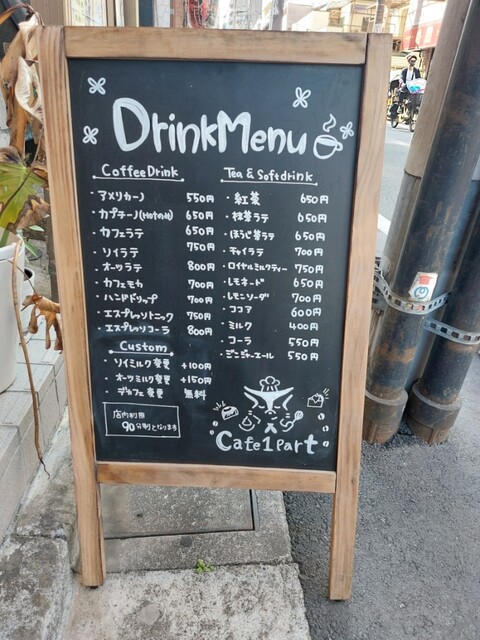 DrinkMenu
Coffee Drink
・アメリカーノ 550円
・カプチーノ(Hotのみ) 650円
・カフェラテ 650円
・ソイラテ 750円
・オーツラテ 800円
・カフェモカ 700円
・ハンドドリップ 700円
・エスプレッソトニック 750円
・エスプレッソコーラ 800円
Custom
・ソイミルク変更 +100円
・オーツミルク変更 +150円
・デカフェ変更 無料
店内利用
90分制となります
Tea & Softdrink
・紅茶 650円
・抹茶ラテ 650円
・ほうじ茶ラテ 650円
・チャイラテ 700円
・ロイヤルミルクティー 750円
・レモネード 650円
・レモンソーダ 700円
・ココア 600円
・ミルク 400円
・コーラ 550円
・ジンジャーエール 550円
Cafe1Part